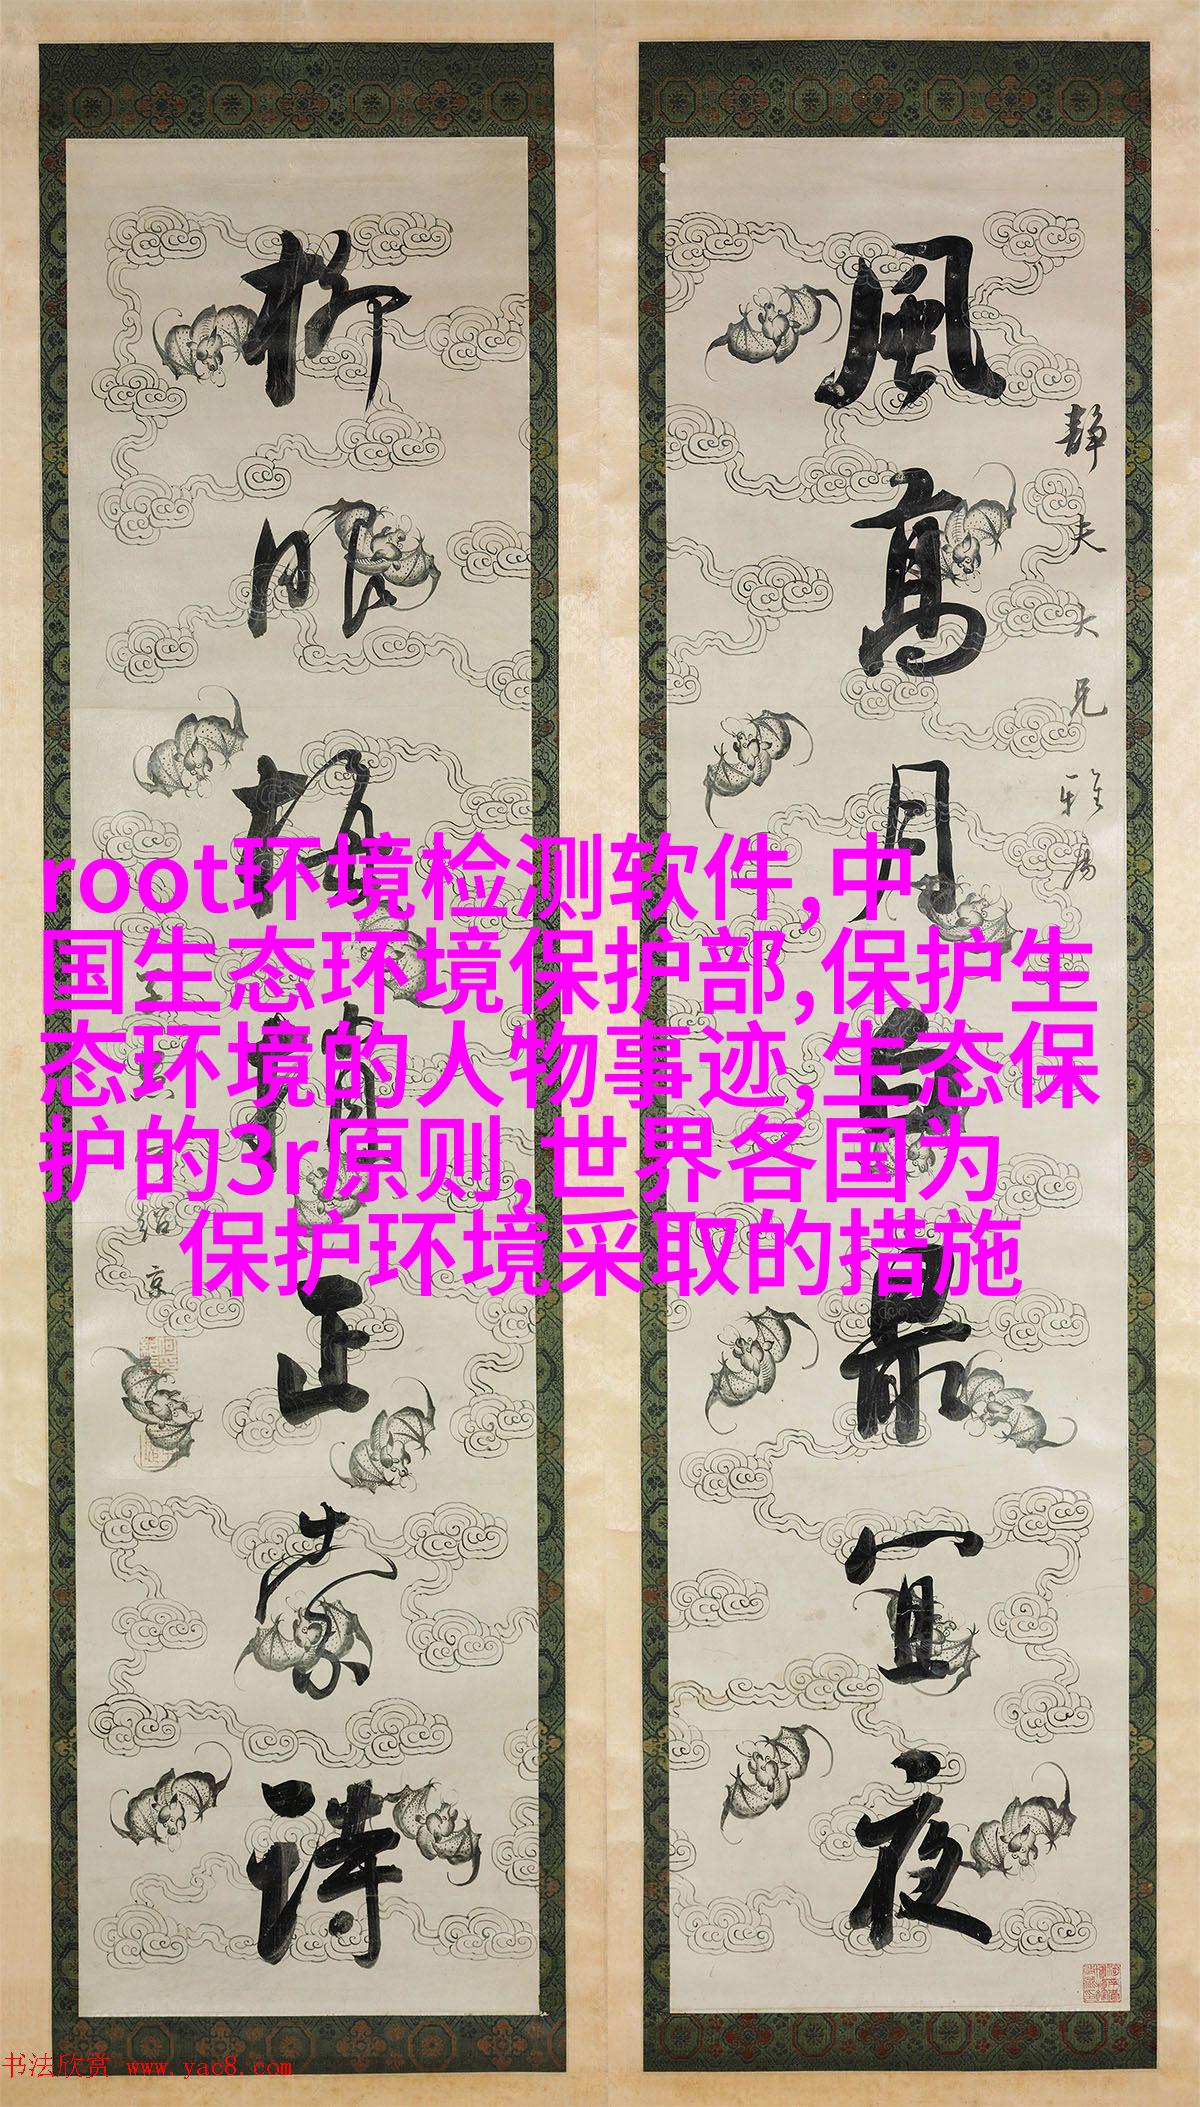 風高月白最宜夜
静夫大兄雅屬
柳眼梅正索詩
子愚何紹京
root环境检测软件,中
国生态环境保护部,保护生
态环境的人物事迹,生态保
护的3r原则,世界各国为
保护环境采取的措施
书法欣赏 www.yac8.com